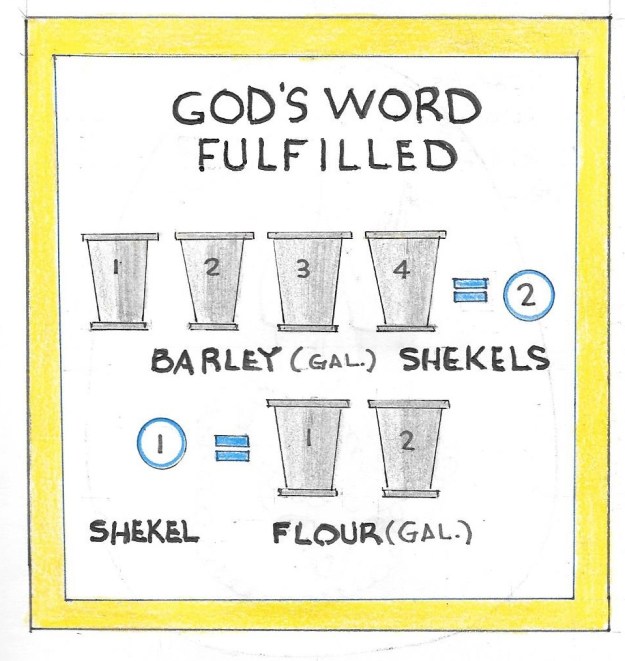 GOD'S WORD
FULFILLED
1 2 3 4 = 2
BARLEY (GAL.) SHEKELS
1 = 1 2
SHEKEL FLOUR (GAL.)